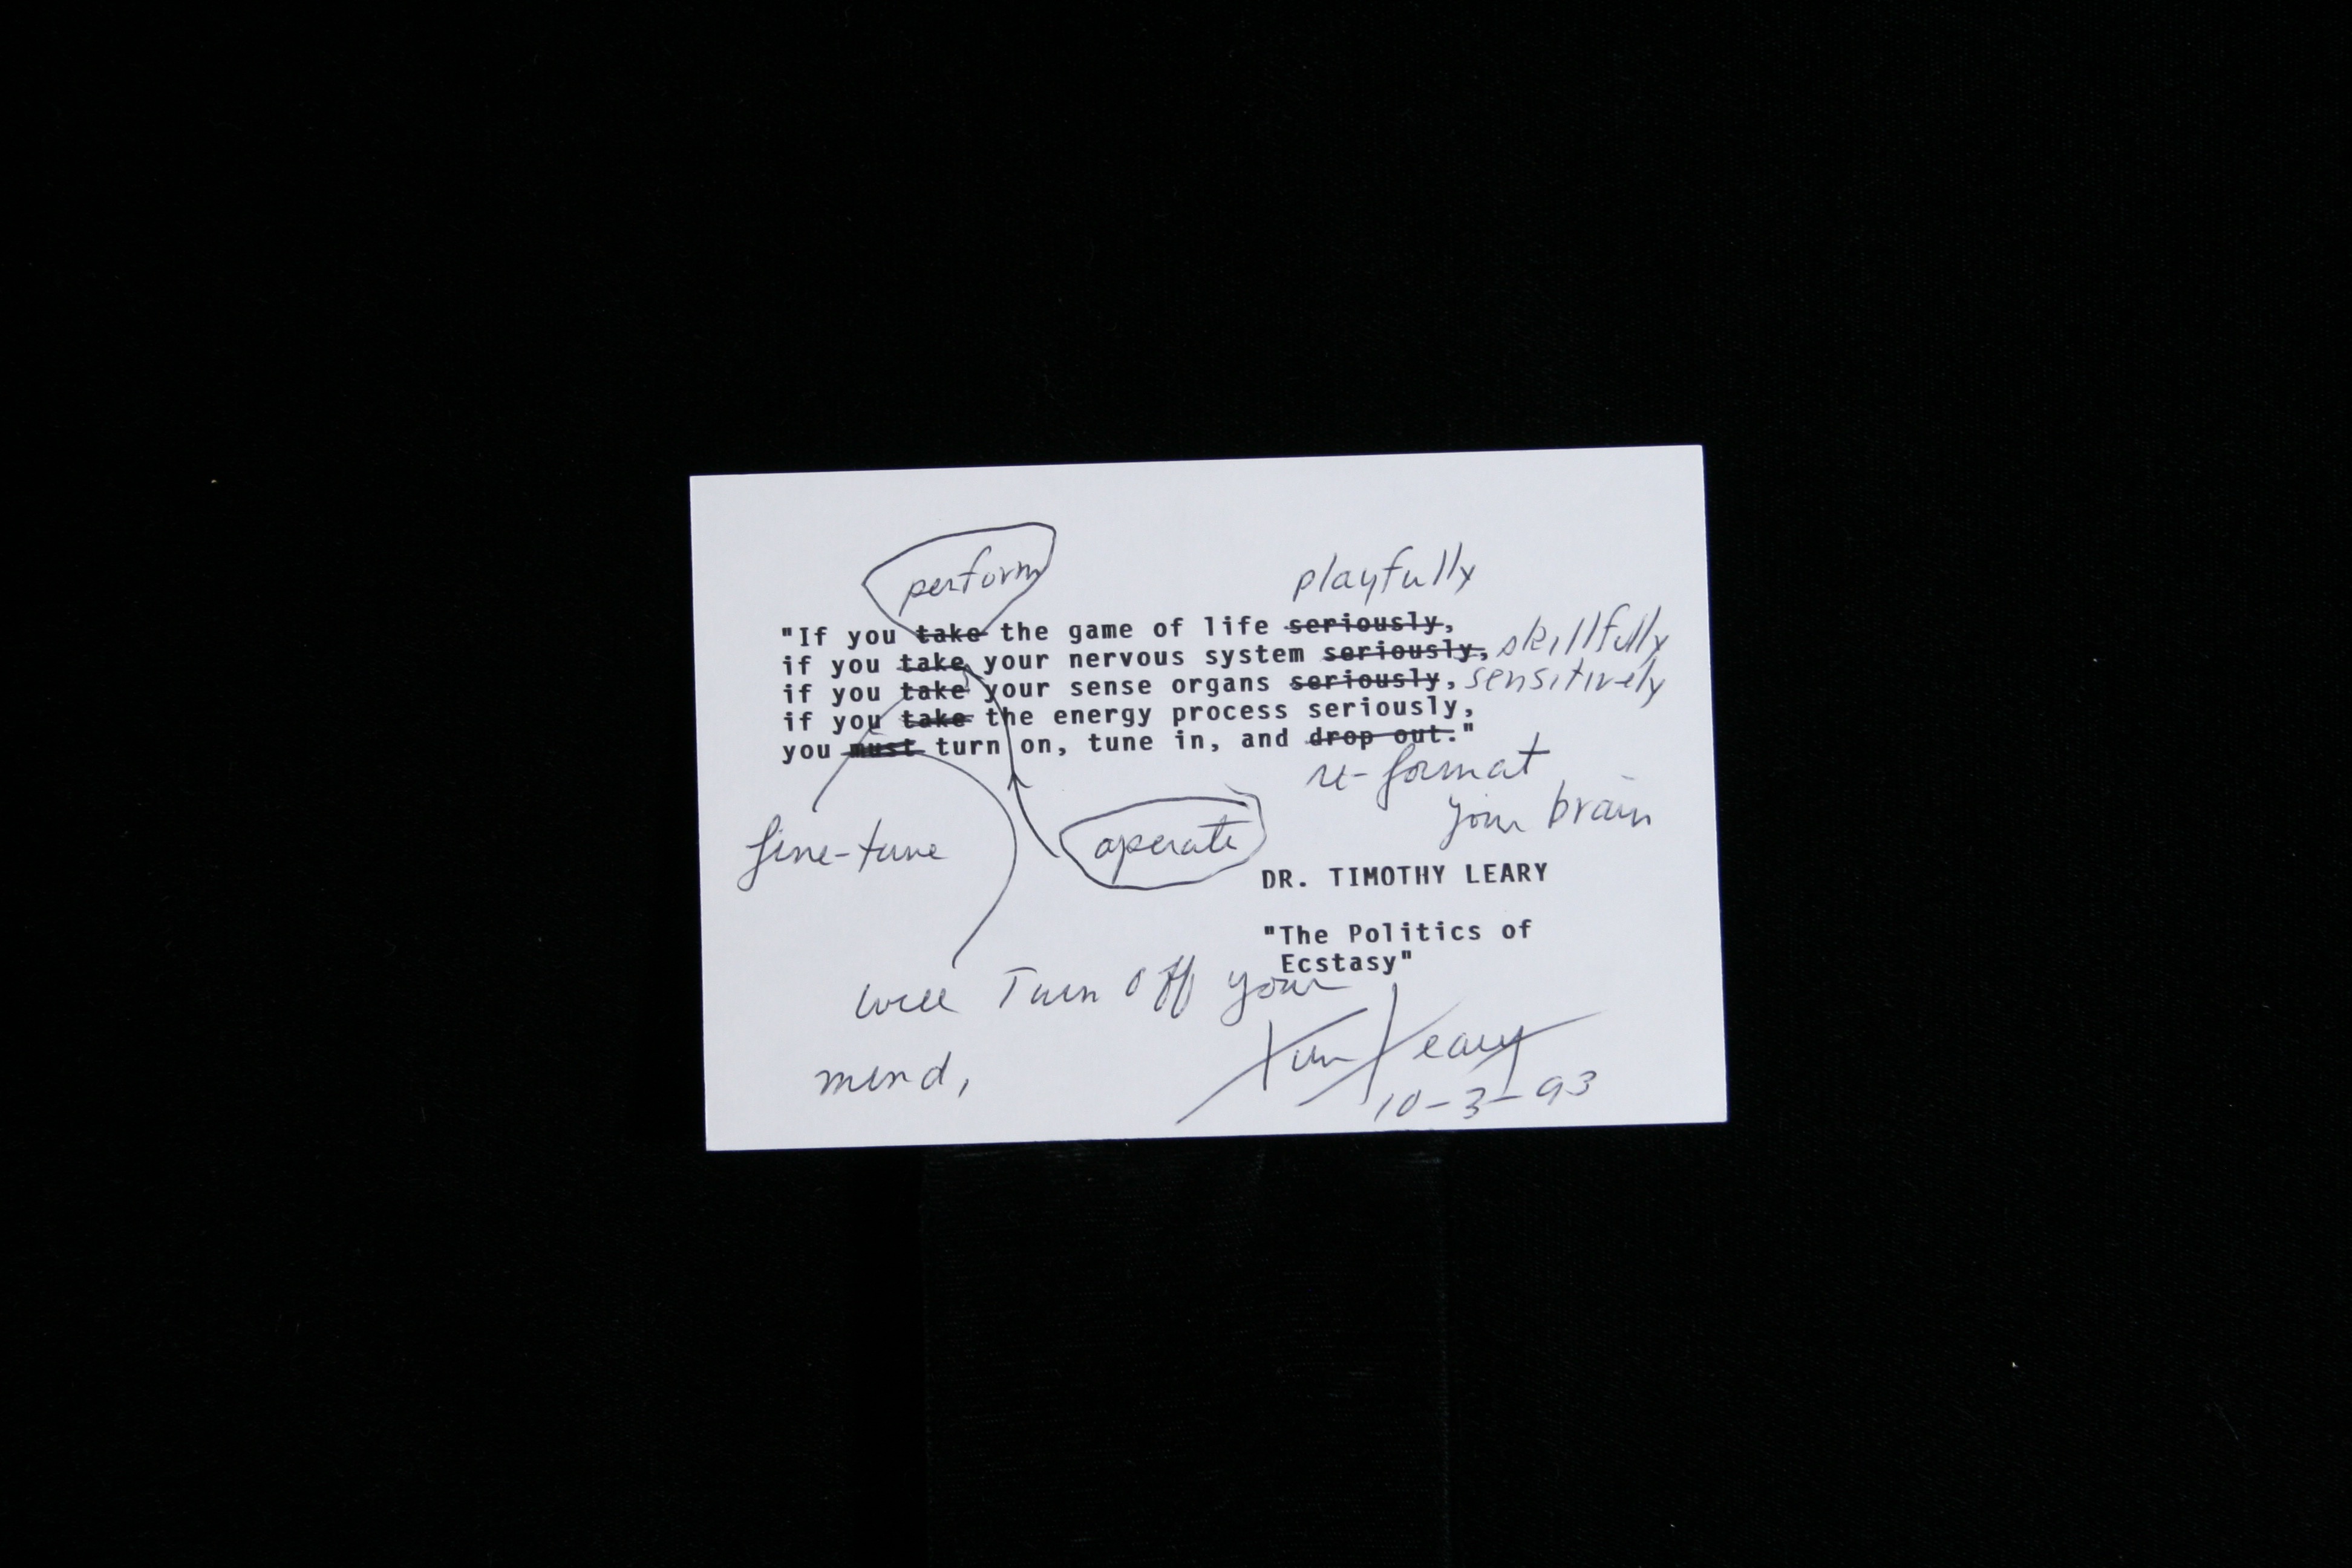 perform
playfully
"If you take the game of life seriously,
if you take your nervous system seriously, skillfully
if you take your sense organs seriously, sensitively
if you take the energy process seriously,
you must turn on, tune in, and drop out."
re-format
your brain
fine-tune
operate
DR. TIMOTHY LEARY
"The Politics of
Ecstasy"
will Turn Off your
mind,
Tim Leary
10-3-93